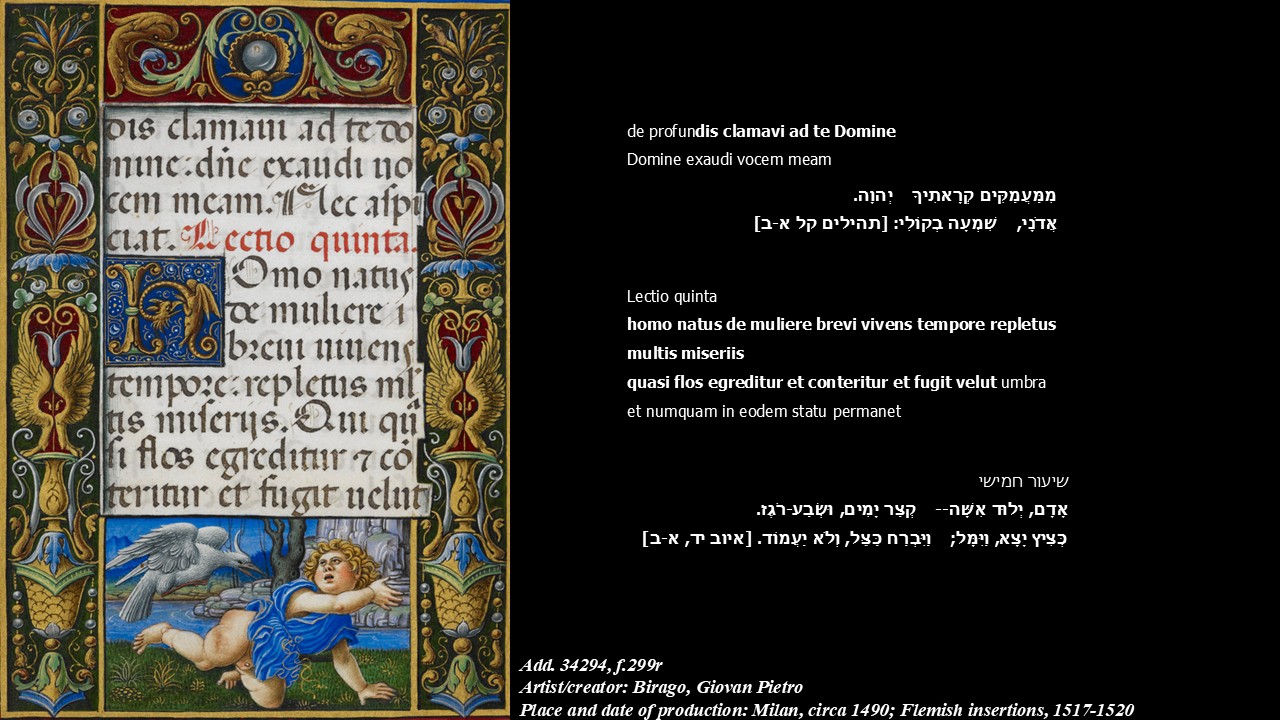 dis clamaui ad te do
mine: dñe exaudi uo
cem meam. Nec aspi
ciat. Lectio quinta.
HOmo natus
de muliere
breui uiuens
tempore: repletus ml
tis miserijs. Qui qu
si flos egreditur ⁊ cõ
teritur et fugit uelut
de profundis clamavi ad te Domine
Domine exaudi vocem meam
מִמַּעֲמַקִּים קְרָאתִיךָ יְהוָה.
אֲדֹנָי, שִׁמְעָה בְקוֹלִי: [תהילים קל א-ב]
Lectio quinta
homo natus de muliere brevi vivens tempore repletus
multis miseriis
quasi flos egreditur et conteritur et fugit velut umbra
et numquam in eodem statu permanet
שיעור חמישי
אָדָם, יְלוּד אִשָּׁה-- קְצַר יָמִים, וּשְׂבַע-רֹגֶז.
כְּצִיץ יָצָא, וַיִּמָּל; וַיִּבְרַח כַּצֵּל, וְלֹא יַעֲמוֹד. [איוב יד, א-ב]
Add. 34294, f.299r
Artist/creator: Birago, Giovan Pietro
Place and date of production: Milan, circa 1490; Flemish insertions, 1517-1520